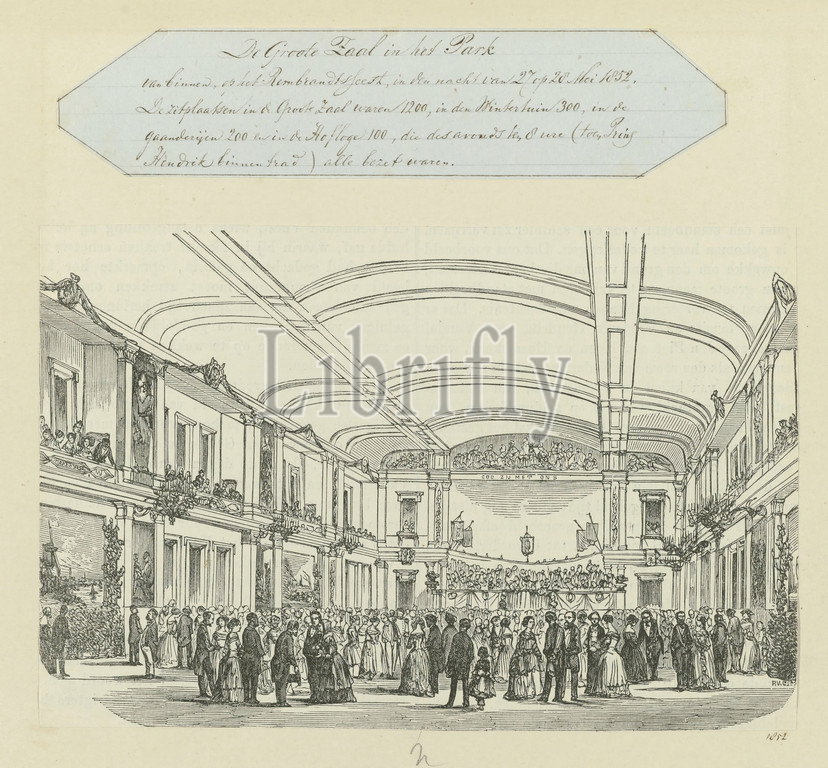 De Groote Zaal in het Park
van binnen, op het Rembrandtsfeest, in den nacht van 27 op 28 Mei 1852.
De zitplaatsen in de Groote Zaal waren 1200, in den Wintertuin 300, in de
gaanderijen 200 en in de Hofloge 100, die des avonds te 8 ure (toen Prins
Hendrik binnen trad) alle bezet waren.
Librifly
GOD ZIJ MET ONS
1852